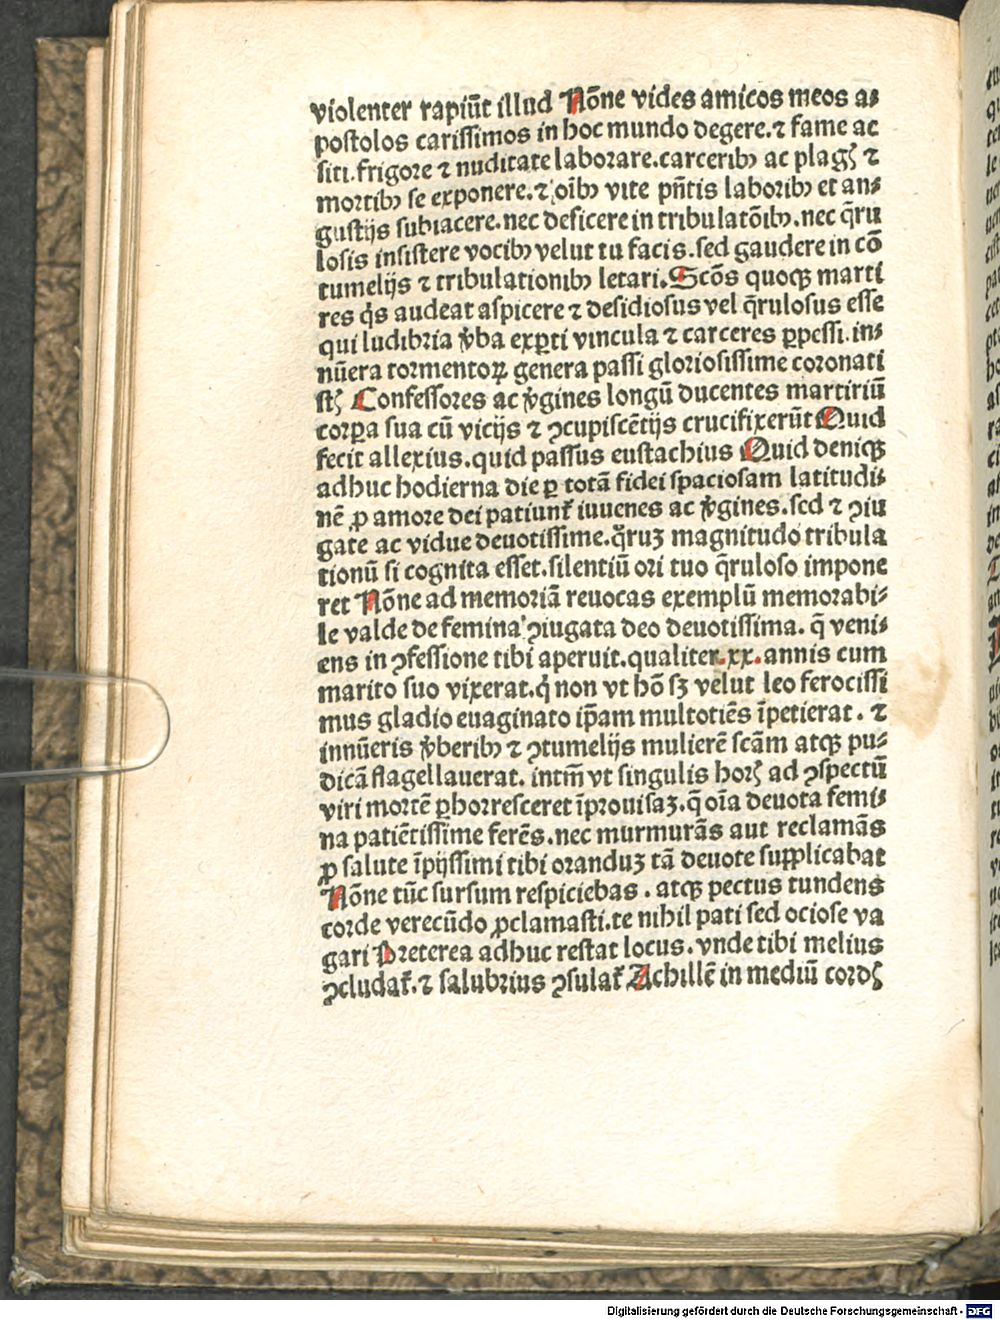 violenter rapiūt illud Nōne vides amicos meos a⸗
postolos carissimos in hoc mundo degere.⁊ fame ac
siti.frigore ⁊ nuditate laborare.carceribꝫ ac plagꝭ ⁊
mortibꝫ se exponere.⁊ oībꝫ vite pn̄tis laboribꝫ et an⸗
gustijs subiacere.nec deficere in tribulatōibꝫ.nec q̄ru
losis insistere vocibꝫ velut tu facis.sed gaudere in cō
tumelijs ⁊ tribulationibꝫ letari.Scōs quoqꝫ marti
res q̇s audeat aspicere ⁊ desidiosus vel q̄rulosus esse
qui ludibria v̓ba exꝑti vincula ⁊ carceres ꝑpessi.in⸗
nūera tormentoꝝ genera passi gloriosissime coronati
stꝭ Confessores ac v̓gines longū ducentes martiriū
corꝑa sua cū vicijs ⁊ ꝯcupiscētijs crucifixerūt Quid
fecit allexius.quid passus eustachius Quid deniqꝫ
adhuc hodierna die ꝑ totā fidei spaciosam latitudi⸗
nē ꝓ amore dei patiunt᷑ iuuenes ac v̓gines.sed ⁊ ꝯiu
gate ac vidue deuotissime.q̄ruꝫ magnitudo tribula
tionū si cognita esset.silentiū ori tuo q̄ruloso impone
ret Nōne ad memoriā reuocas exemplū memorabi⸗
le valde de femina ꝯiugata deo deuotissima. q̄ veni⸗
ens in ꝯfessione tibi aperuit.qualiter.xx.annis cum
marito suo vixerat.q̇ non vt hō sꝫ velut leo ferocissi
mus gladio euaginato ip̄am multotiēs īpetierat. ⁊
innūeris v̓beribꝫ ⁊ ꝯtumelijs mulierē scām atqꝫ pu⸗
dicā flagellauerat. intm̄ vt singulis horꝭ ad ꝯspectū
viri mortē ꝑhorresceret īprouisaꝫ.q̄ oīa deuota femi⸗
na patiētissime ferēs.nec murmurās aut reclamās
ꝓ salute īpijssimi tibi oranduꝫ tā deuote supplicabat
Nōne tūc sursum respiciebas . atqꝫ pectus tundens
corde verecūdo ꝓclamasti.te nihil pati sed ociose va
gari Preterea adhuc restat locus.vnde tibi melius
ꝯcludat᷑.⁊ salubrius ꝯsulat᷑ Achillē in mediū cordꝭ
Digitalisierung gefördert durch die Deutsche Forschungsgemeinschaft - DFG